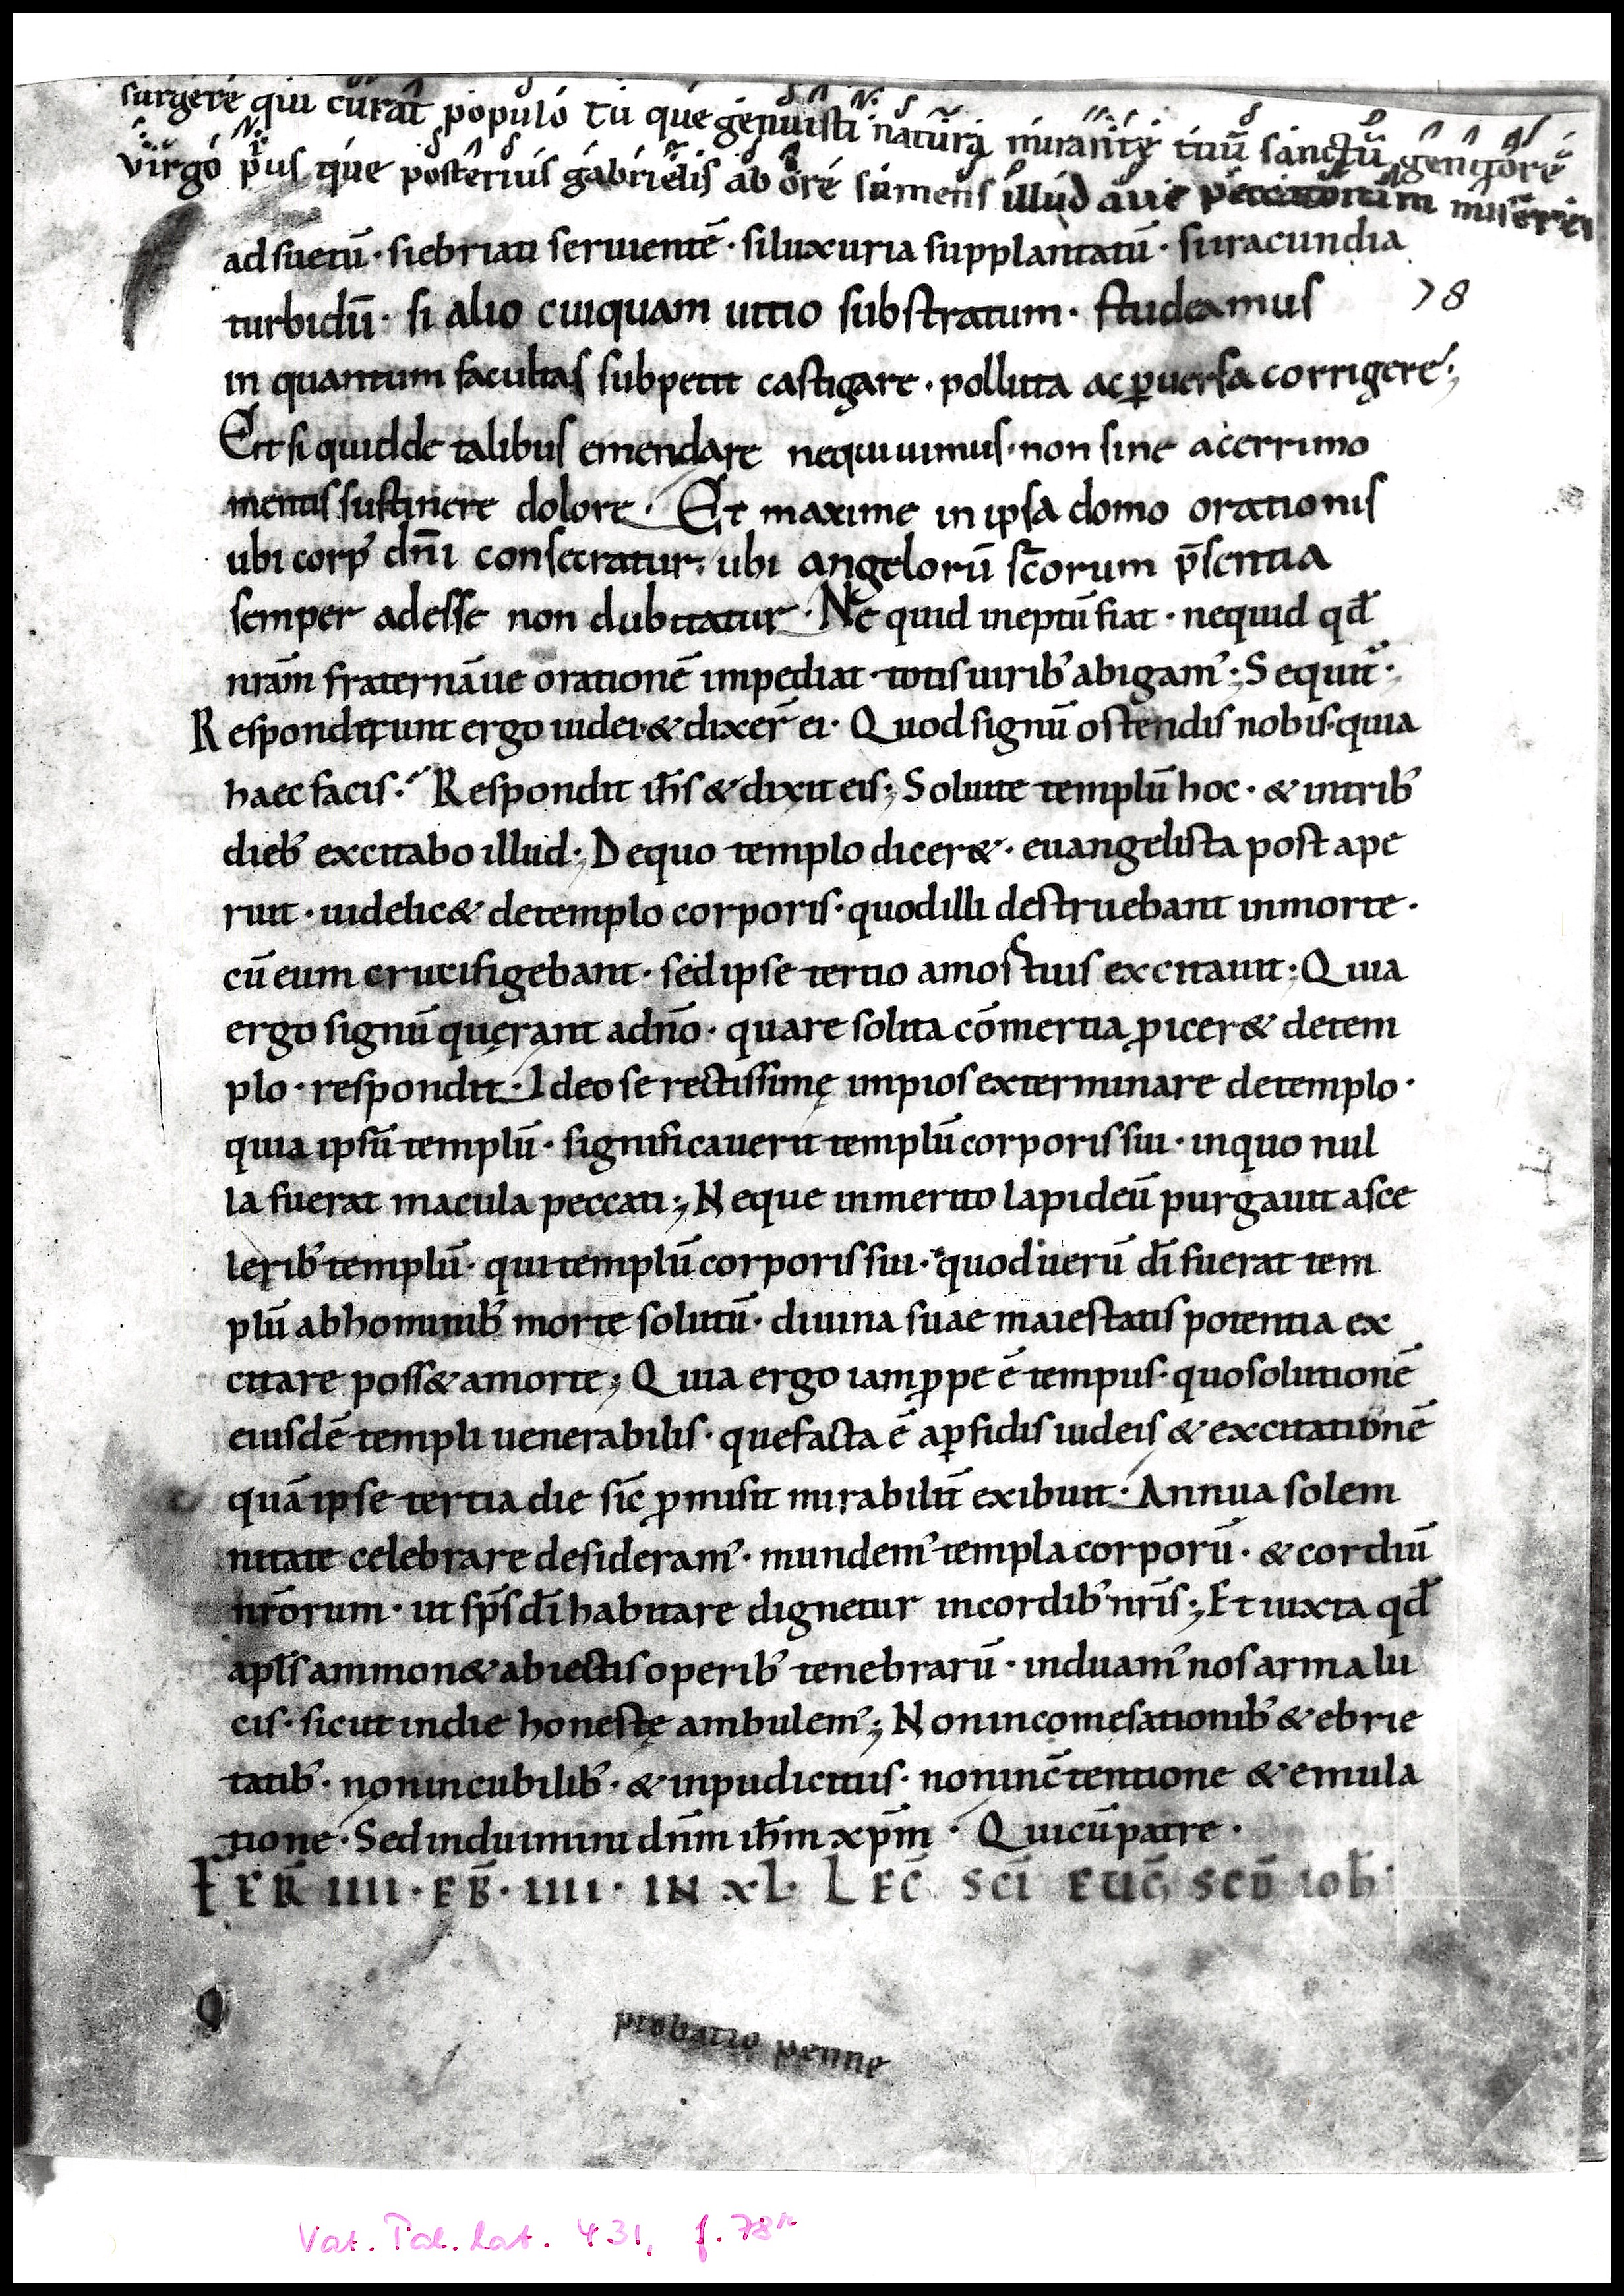 surgere qui curat populo tu que genuisti naturą mirantę tuū sanctū genitorē
virgo p̄us que posterius gabrielis ab ore sumens illud aue peccatorum miserere
adsuetū · siebriati seruientē · siluxuria supplantatū · suracundia
turbidū · si alio cuiquam uitio substratum · studeamus
78
in quantum facultas subpetit castigare · polluta ac ꝑuersa corrigere;
Et si quidde talibus emendare nequiuimus · non sine acerrimo
mentis sustinere dolore · Et maxime in ipsa domo orationis
ubi corp' dn̄i consecratur · ubi angelorū sc̄orum p̄sentia
semper adesse non dubitatur · Ne quid ineptū fiat · nequid qd̄
nr̄am fraternāue orationē impediat · totis uirib' abigam'; Sequit̄ ;
Responderunt ergo iudei · & dixer̄ ei · Quod signū ostendis nobis · quia
haec facis · Respondit ih̄s & dixit eis; Soluite templū hoc · & intrib'
dieb' excitabo illud; Dequo templo dicer& · euangelista post ape
ruit · uidelic& detemplo corporis · quod illi destruebant inmorte ·
cū eum crucifigebant · sed ipse tertio amostuis excitauit : Quia
ergo signū quęrant adn̄o · quare solita cōmertia ꝓicer& detem
plo · respondit · Ideo se rectissimę impios exterminare detemplo ·
quia ipsū templū · significauerit templū corporis sui · inquo nul
la fuerat macula peccati; Neque inmerito lapideū purgauit asce
lęrib' templū · qui templū corporis sui · quod uerū dī fuerat tem
plū abhominib' morte solutū · diuina suae maiestatis potentia ex
citare poss& amorte; Quia ergo iam ꝓpe ē tempus · quo solutionē
eiusdē templi uenerabilis · quefacta ē aꝑfidis iudeis & excitationē
quā ipse tertia die sic̄ ꝓmisit mirabilit̄ exibuit · Annua solem
nitate celebrare desideram' · mundem' templa corporū · & cordiū
nr̄orum · ut sp̄s dī habitare dignetur incordib' nr̄is; Et iuxta qd̄
apl̄s ammon& abiectis operib' tenebrarū · induam' nos arma lu
cis · sicut indie honestę ambulem'; Nonincomesationib' & ebrie
tatib' · nonincubilib' · & inpudicitiis · noninc̄tentione & emula
tione · Sed induimini dn̄m ih̄m xp̄m · Quicū patre ·
FER̄ IIII · EB̄ · IIII · IN XL · LEC̄ SCI EUḠ SCD̄ IOH̄
probatio penne
Vat. Pal. Lat. 431, f. 78r